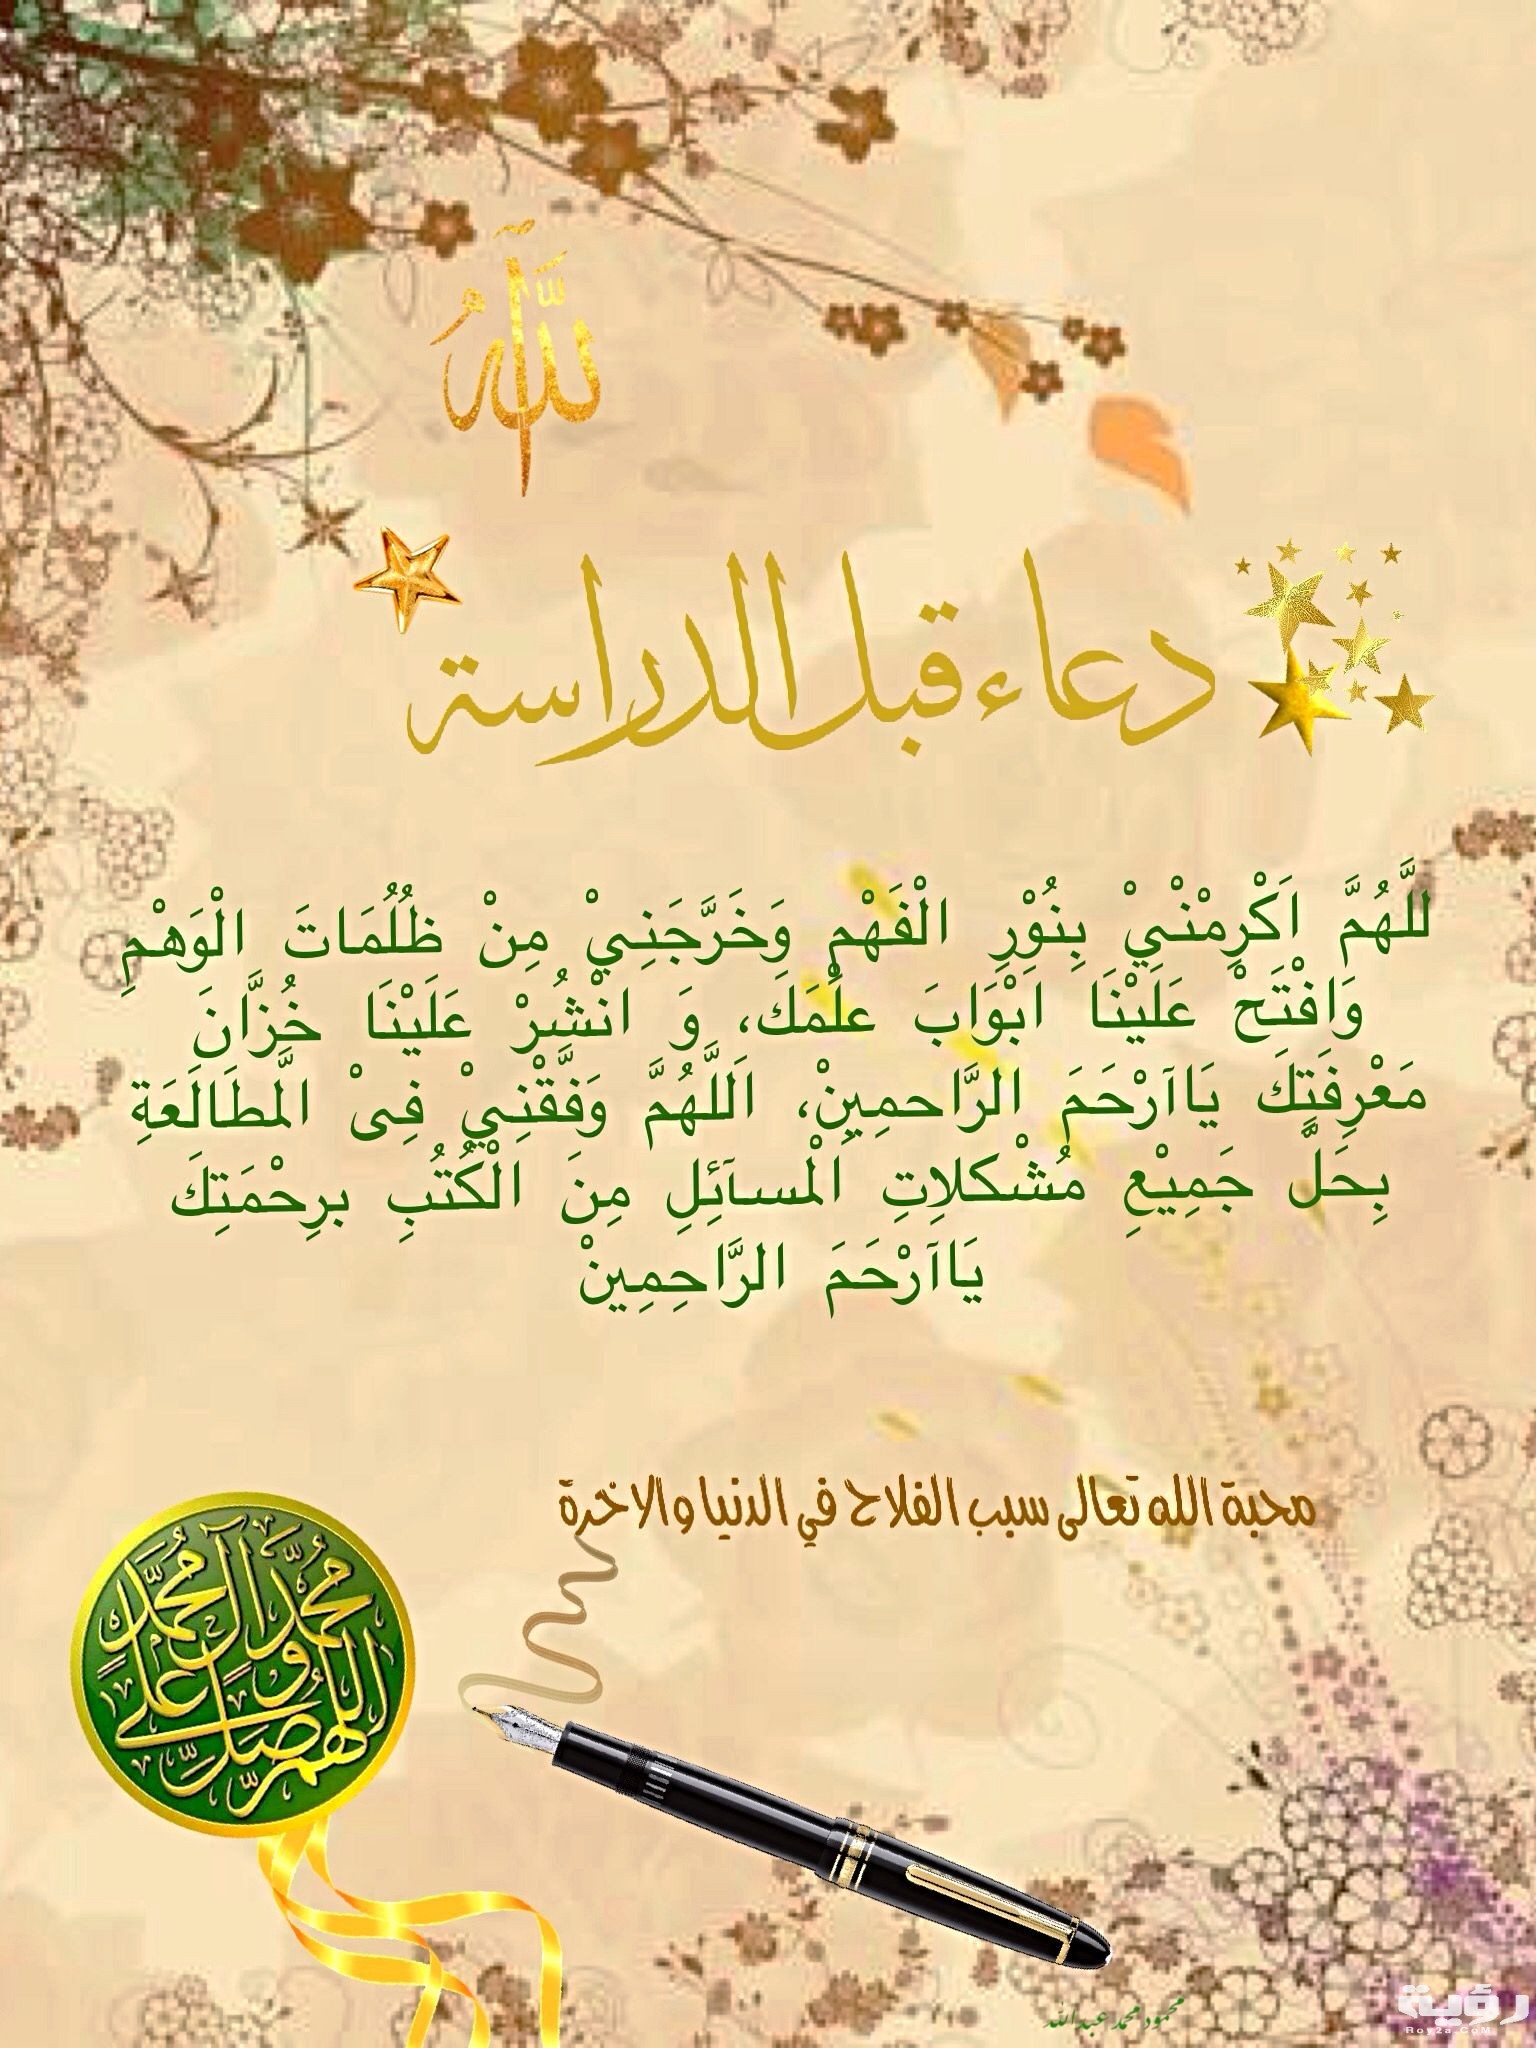 الله
دعاء قبل الدراسة
للَّهُمَّ اَكْرِمْنْيْ بِنُوْرِ الْفَهْمِ وَخَرَّجَنِيْ مِنْ ظُلُمَاتَ الْوَهْمِ
وَافْتَحْ عَلَيْنَا اَبْوَابَ علْمَكَ، وَ انْشُرْ عَلَيْنَا خُزَّانَ
مَعْرِفَتِكَ يَاآرْحَمَ الرَّاحمِيِنْ، اَللَّهُمَّ وَفَّقْنِيْ فِىْ الَّمطَالَعَةِ
بِحَلَّ جَمِيْعِ مُشْكلاِتِ الْمسآئِلِ مِنَ الْكُتُبِ برِحْمَتِكَ
يَاآرْحَمَ الرَّاحِمِينْ
محبة الله تعالى سبب الفلاح في الدنيا والاخرة
اللهم صل على محمد وآل محمد
محمود محمد عبدالله
رؤية
Roy2a.CoM